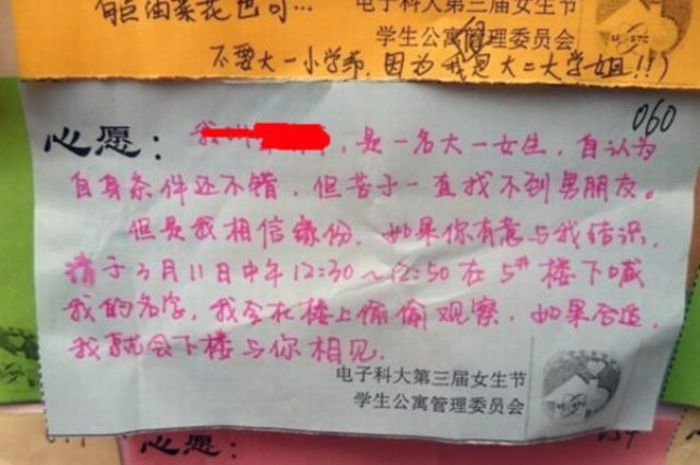 自已油菜花也可…
电子科大第三届女生节
学生公寓管理委员会
不要大一小学弟,因为我是大二大学姐!!)
060
心愿:
我叫 ,是一名大一女生,自认为
自身条件还不错,但苦于一直找不到男朋友。
但是我相信缘份,如果你有意与我结识,
请于3月11日中午12:30~12:50在5#楼下喊
我的名字,我会在楼上偷偷观察,如果合适,
我就会下楼与你相见.
电子科大第三届女生节
学生公寓管理委员会
心愿: